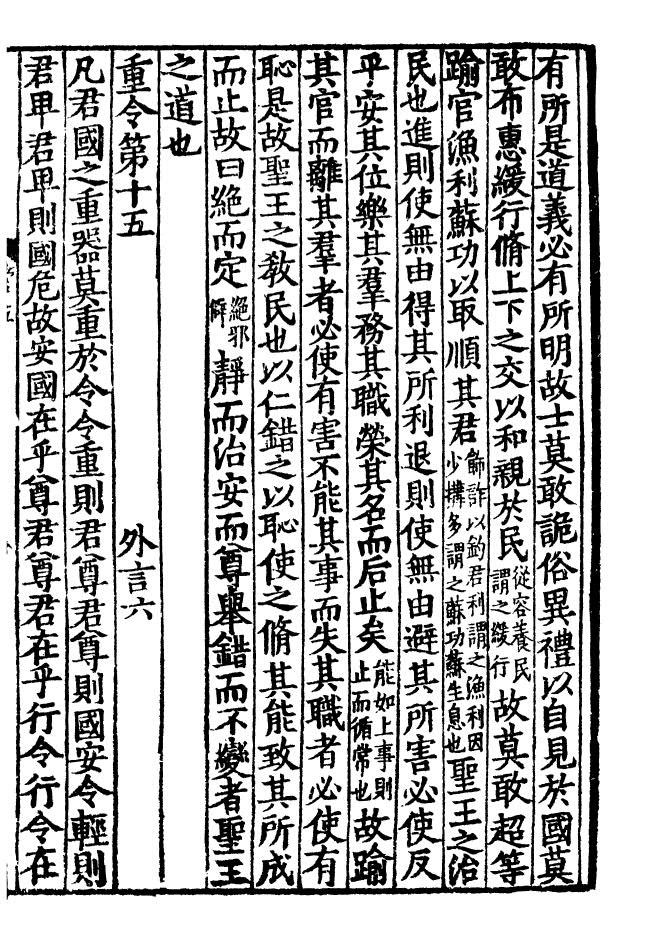 有所是道義必有所明故士莫敢詭俗異禮以自見於國莫
敢布惠緩行脩上下之交以和親於民從容養民謂之緩行故莫敢超等
踰官漁利蘇功以取順其君飾詐以釣君利謂之漁利因少搆多謂之蘇功蘇生息也聖王之治
民也進則使無由得其所利退則使無由避其所害必使反
乎安其位樂其羣務其職榮其名而后止矣能如上事則止而循常也故踰
其官而離其羣者必使有害不能其事而失其職者必使有
恥是故聖王之敎民也以仁錯之以恥使之脩其能致其所成
而止故曰絕而定絕邪僻靜而治安而尊舉錯而不變者聖王
之道也
重令第十五 外言六
凡君國之重器莫重於令令重則君尊君尊則國安令輕則
君卑君卑則國危故安國在乎尊君尊君在乎行令行令在